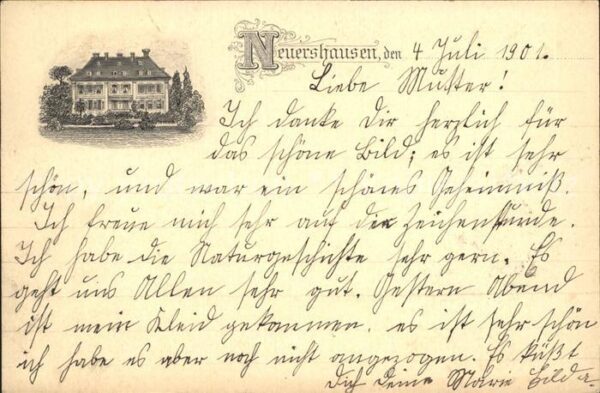 Neuershausen, den 4 Juli 1901.
Liebe Mutter!
Ich danke Dir herzlich für
das schöne Bild; es ist sehr
schön, und war ein schönes Geheimniß.
Ich freue mich sehr auf die Zeichenstunde.
Ich habe die Naturgeschichte sehr gern. Es
geht uns Allen sehr gut. Gestern Abend
ist mein Kleid gekommen. es ist sehr schön
ich habe es aber noch nicht angezogen. Es küßt
Dich Deine Marie Hilda.